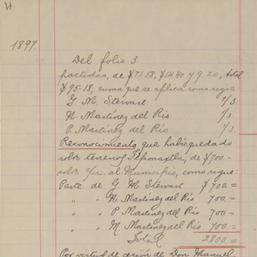 1897
Del folio 3
partidas, de $71.58, $14.40 y 9.20, total
$95.18, suma que se aplica como sigue
G M Stewart 1/3
N Martinez del Rio 1/3
P Martinez del Rio 1/3
Reconocimiento, que había quedado
sobre terrenos de $700
sobre el Municipio, como sigue:
Parte de G M Stewart $700 =
" " N Martinez del Rio 700 =
" " P Martinez del Rio 700 =
" " M Martinez del Rio 700 =
Total 2800 =
Por virtud de cesión de Don Manuel